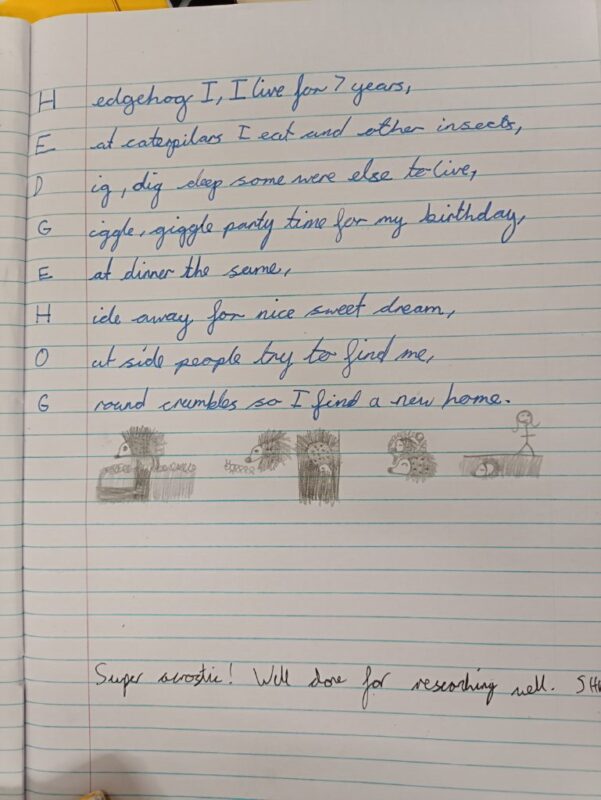 H edgehog I, I live for 7 years,
E at caterpilars I eat and other insects,
D ig, dig deep some were else to live,
G iggle, giggle party time for my birthday,
E at dinner the same,
H ide away for nice sweet dream,
O ut side people try to find me,
G round crumbles so I find a new home.
Super acrostic! Well done for researching well.